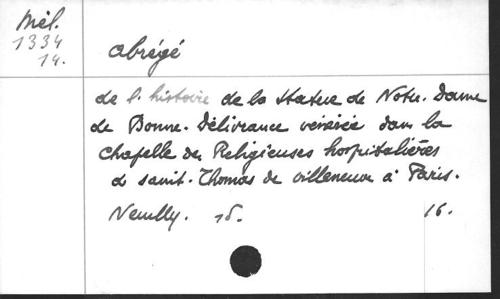 Mél.
1334
14.
Abrégé
de l'histoire de la statue de Notre-Dame
de Bonne-Délivrance vénérée dans la
Chapelle des Religieuses hospitalières
de saint-Thomas de villeneuve à Paris.
Neuilly. 16.